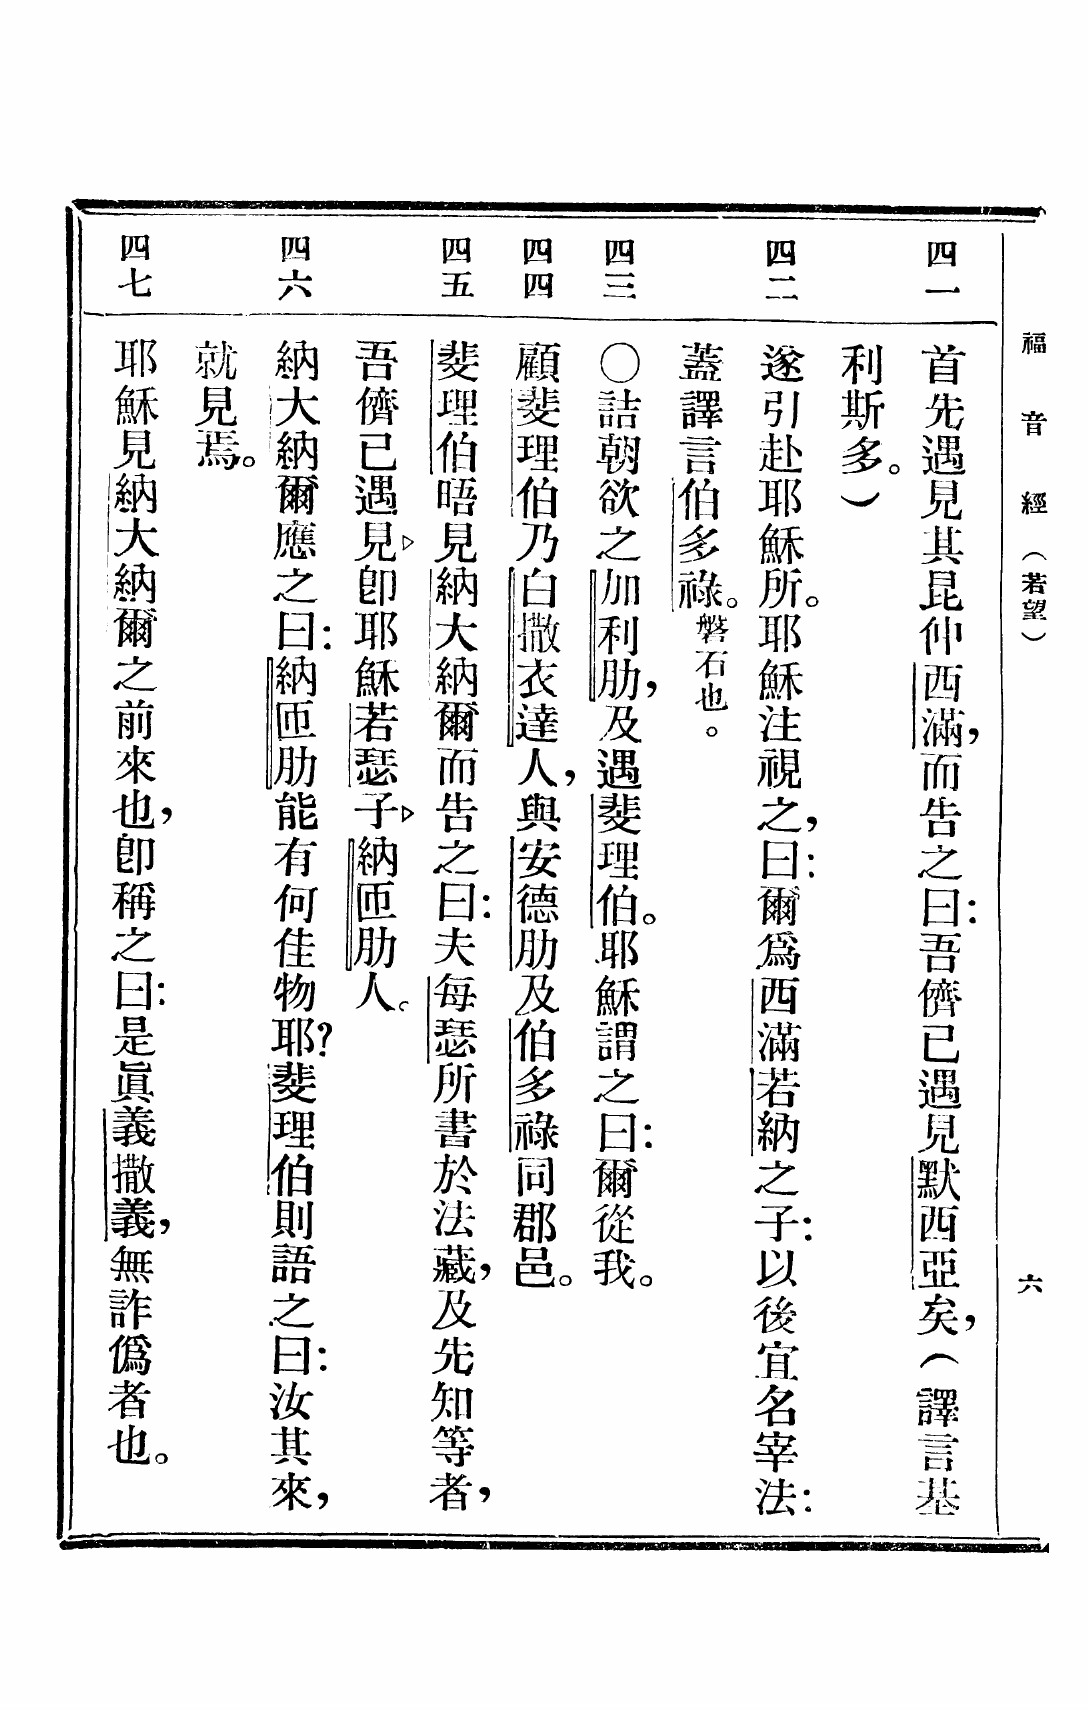 福音經（若望）　六
四一
首先遇見其昆仲西滿，而告之曰：吾儕已遇見默西亞矣，（譯言基
利斯多。）
四二
遂引赴耶穌所。耶穌注視之，曰：爾爲西滿若納之子：以後宜名宰法：
蓋譯言伯多祿。磐石也。
四三
〇詰朝欲之加利肋，及遇斐理伯。耶穌謂之曰：爾從我。
四四
顧斐理伯乃白撒衣達人，與安德肋及伯多祿同郡邑。
四五
斐理伯晤見納大納爾而告之曰：夫每瑟所書於法藏，及先知等者，
吾儕已遇見▷卽耶穌若瑟子▷納匝肋人。
四六
納大納爾應之曰：納匝肋能有何佳物耶？斐理伯則語之曰：汝其來，
就見焉。
四七
耶穌見納大納爾之前來也，卽稱之曰：是眞義撒義，無詐僞者也。